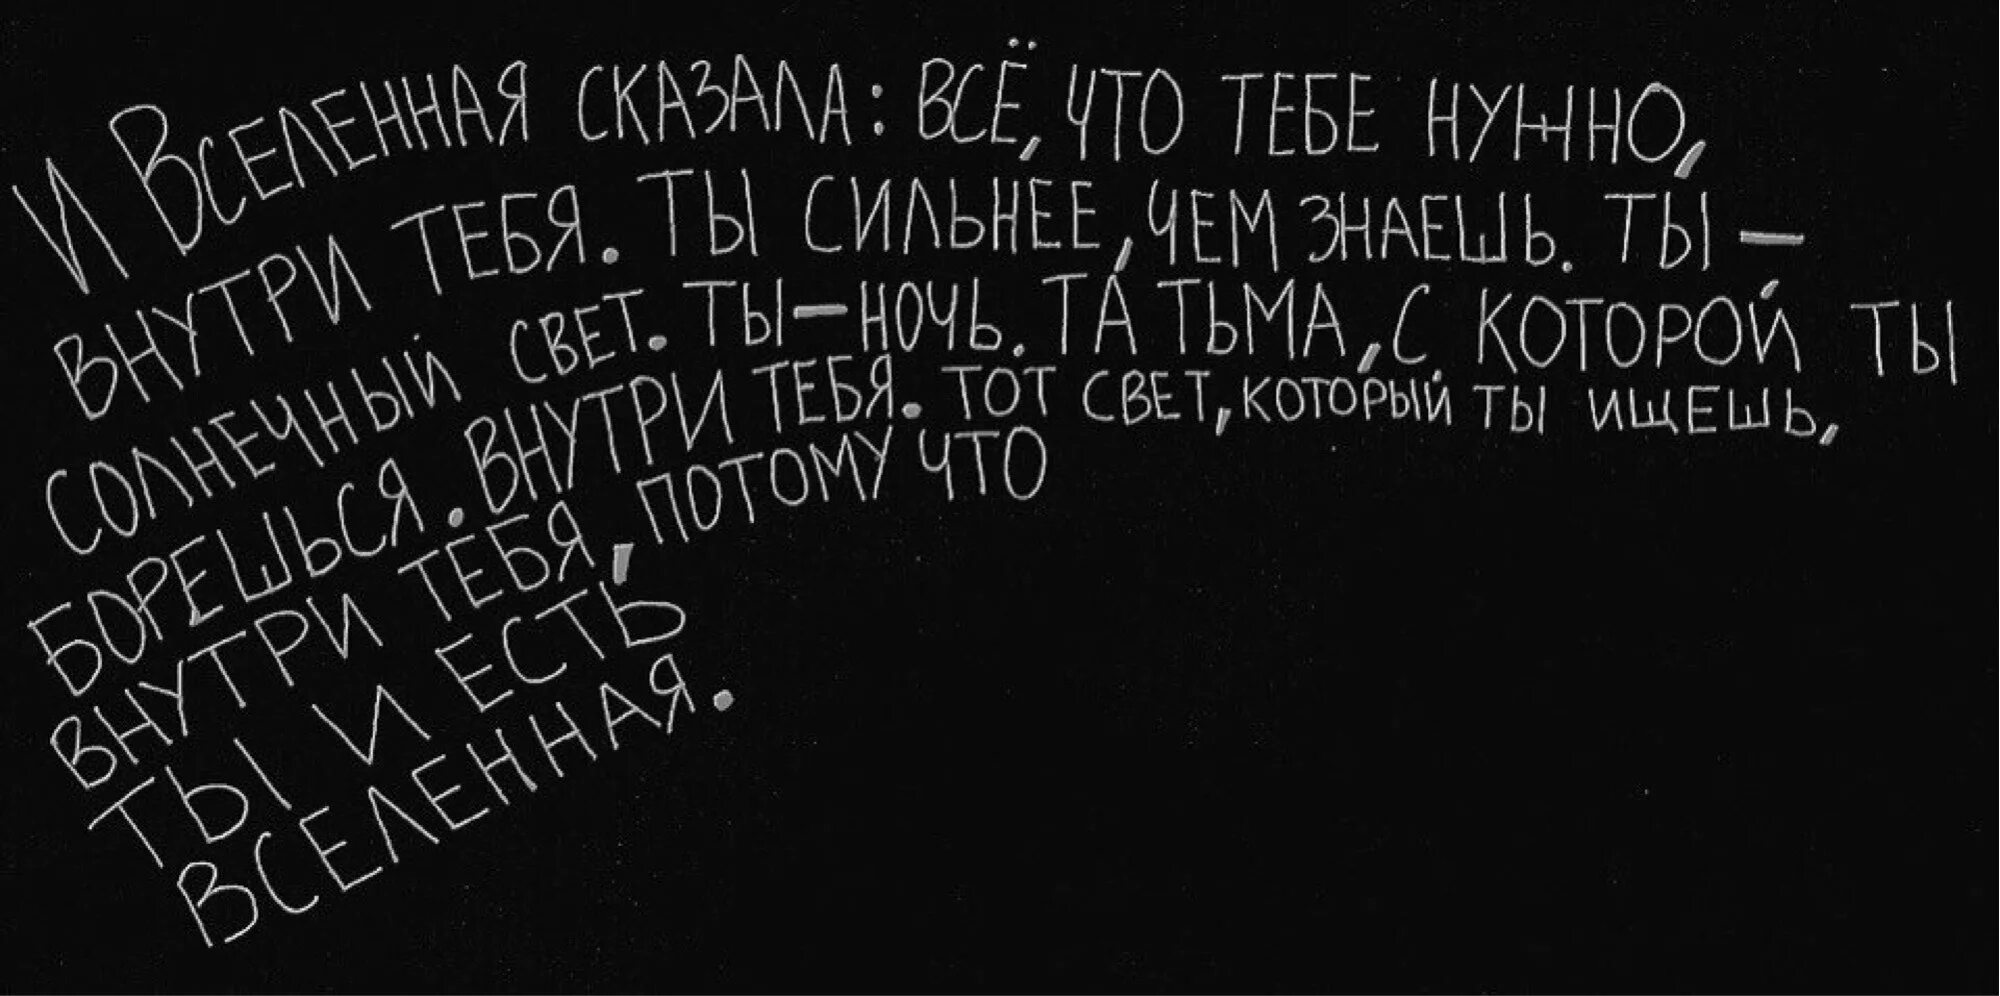 И ВСЕЛЕННАЯ СКАЗАЛА: ВСЁ, ЧТО ТЕБЕ НУЖНО,
ВНУТРИ ТЕБЯ. ТЫ СИЛЬНЕЕ, ЧЕМ ЗНАЕШЬ. ТЫ —
СОЛНЕЧНЫЙ СВЕТ. ТЫ — НОЧЬ. ТА ТЬМА, С КОТОРОЙ ТЫ
БОРЕШЬСЯ. ВНУТРИ ТЕБЯ. ТОТ СВЕТ, КОТОРЫЙ ТЫ ИЩЕШЬ,
ВНУТРИ ТЕБЯ, ПОТОМУ ЧТО
ТЫ И ЕСТЬ
ВСЕЛЕННАЯ.